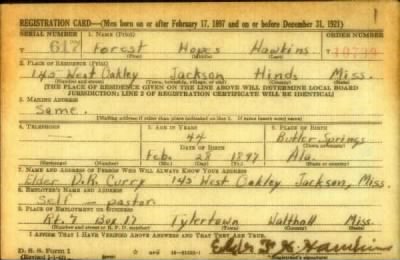 REGISTRATION CARD—(Men born on or after February 17, 1897 and on or before December 31, 1921)
SERIAL NUMBER 1. NAME (Print) ORDER NUMBER
T 617 Forest Hopes Hawkins 10799
(First) (Middle) (Last)
2. PLACE OF RESIDENCE (Print)
143 West Oakley Jackson Hinds Miss.
(Number and street) (Town, township, village, or city) (County) (State)
[THE PLACE OF RESIDENCE GIVEN ON THE LINE ABOVE WILL DETERMINE LOCAL BOARD
JURISDICTION; LINE 2 OF REGISTRATION CERTIFICATE WILL BE IDENTICAL]
3. MAILING ADDRESS
Same.
[Mailing address if other than place indicated on line 2. If same insert word same]
4. TELEPHONE 5. AGE IN YEARS 6. PLACE OF BIRTH
— 44 Butler Springs
DATE OF BIRTH (Town or county)
Feb. 28 1897 Ala.
(Exchange) (Number) (Mo.) (Day) (Yr.) (State or country)
7. NAME AND ADDRESS OF PERSON WHO WILL ALWAYS KNOW YOUR ADDRESS
Elder D.R. Curry 143 West Oakley Jackson, Miss.
8. EMPLOYER'S NAME AND ADDRESS
Self - pastor
9. PLACE OF EMPLOYMENT OR BUSINESS
Rt. 7 Box 17 Tylertown Walthall Miss.
(Number and street or R. F. D. number) (Town) (County) (State)
I AFFIRM THAT I HAVE VERIFIED ABOVE ANSWERS AND THAT THEY ARE TRUE.
D. S. S. Form 1
(Revised 1-1-42) (over)